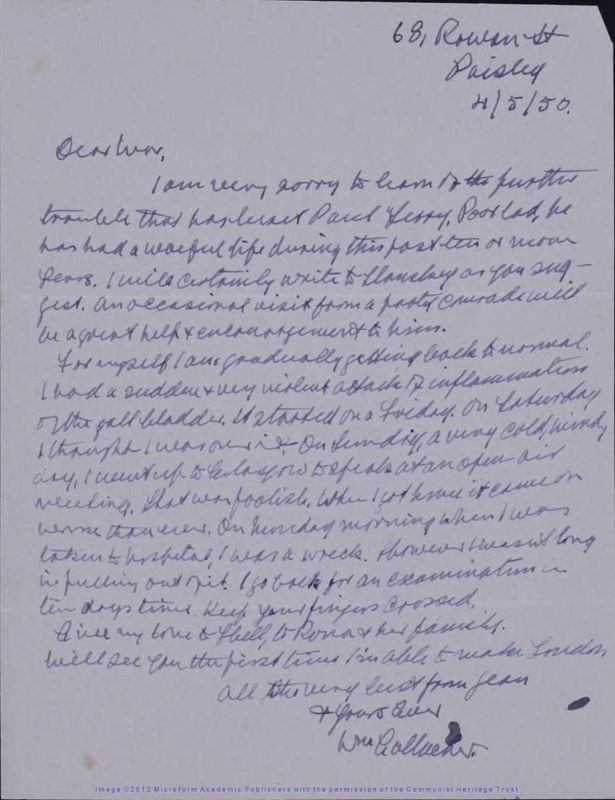 68, Rowan St
Paisley
4/5/50.
Dear Ivor,
I am very sorry to learn of the further
trouble that has beset Paul Terry. Poor lad, he
has had a woeful life during this past ten or more
years. I will certainly write to as you sug-
gest. An occasional visit from a party comrade will
be a great help & encouragement to him.
For myself I am gradually getting back to normal.
I had a sudden & very violent attack of inflammation
of the gall bladder. It started on a Friday. On Saturday
I thought I was over it. On Sunday, a very cold, windy
day, I went up to Glasgow to speak at an open air
meeting. That was foolish. When I got home it came on
worse than ever. On Monday morning when I was
taken to hospital, I was a wreck. However I wasn't long
in pulling out of it. I go back for an examination in
ten days time. Keep your fingers crossed.
Give my love to , to Rona & her family.
Will see you the first time I'm able to make London
All the very best from Jean
& Yours Ever
Wm Gallacher.
Image ©2012 Microform Academic Publishers with the permission of the Communist Heritage Trust